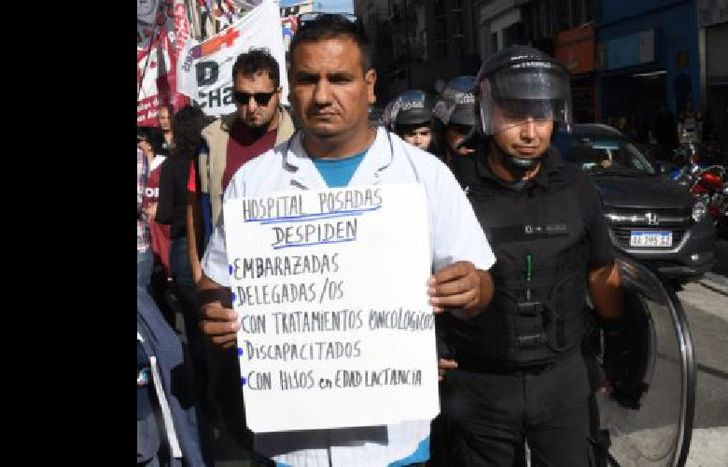 HOSPITAL POSADAS
DESPIDEN
• EMBARAZADAS
• DELEGADAS/OS
• CON TRATAMIENTOS ONCOLOGICOS
• DISCAPACITADOS
• CON HIJOS en EDAD LACTANCIA